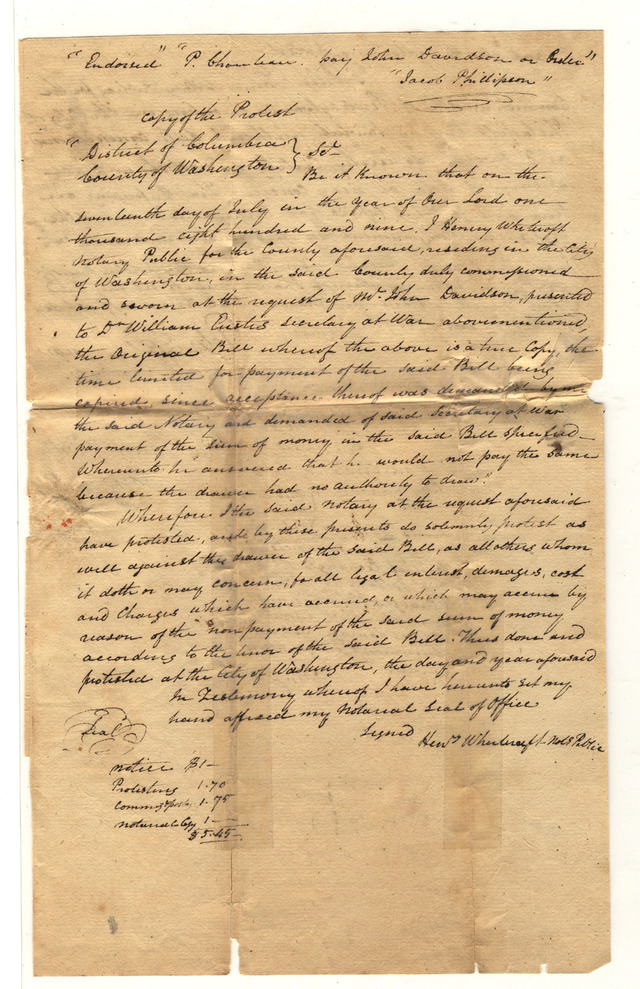 "Endorsed" "P. Chouteau. pay John Davidson or Order"
"Jacob Phillipson"
copy of the Protest
"District of Columbia
County of Washington } Sct
Be it Known that on the
seventeenth day of July in the Year of Our Lord one
thousand eight hundred and nine, I Henry Whetcroft
Notary Public for the County aforesaid, residing in the City
of Washington, in the said County duly commissioned
and sworn at the request of Mr John Davidson, presented
to Dr William Eustis secretary at War abovementioned,
the Original Bill whereof the above is a true Copy, the
time limited for payment of the said Bill being
expired since acceptance thereof was demanded by me
the said Notary and demanded of said Secretary at War
payment of the sum of money in the said Bill specified
Whereunto he answered that he would not pay the same
because the drawer had no authority to draw."
Wherefore I the said Notary at the request aforesaid
have protested, and by these presents do solemnly protest as
well against the drawer of the said Bill, as all others whom
it doth or may concern, for all legal interest, damages, cost
and Charges which have accrued, or which may accrue by
reason of the nonpayment of the said sum of money
according to the tenor of the said Bill. Thus done and
protested at the City of Washington, the day and year aforesaid
In Testimony whereof I have hereunto set my
hand affixed my Notarial Seal of Office
Seal
Signed
Henry Whetcroft Not. Public
notice $1 —
Protesting 1.70
1.75
Notarial Copy 1 —
$5.45